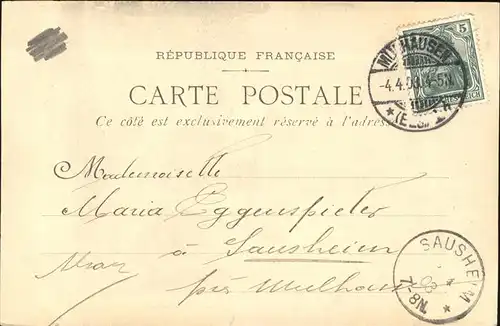 RÉPUBLIQUE FRANÇAISE
CARTE POSTALE
Ce côté est exclusivement réservé à l'adresse
5
MÜLHAUSEN
-4.4.03.4-5N.
*(ELS.)
Mademoiselle
Maria Eggenspieler
à Sausheim
près Mulhouse
SAUSHEIM
7-8N.